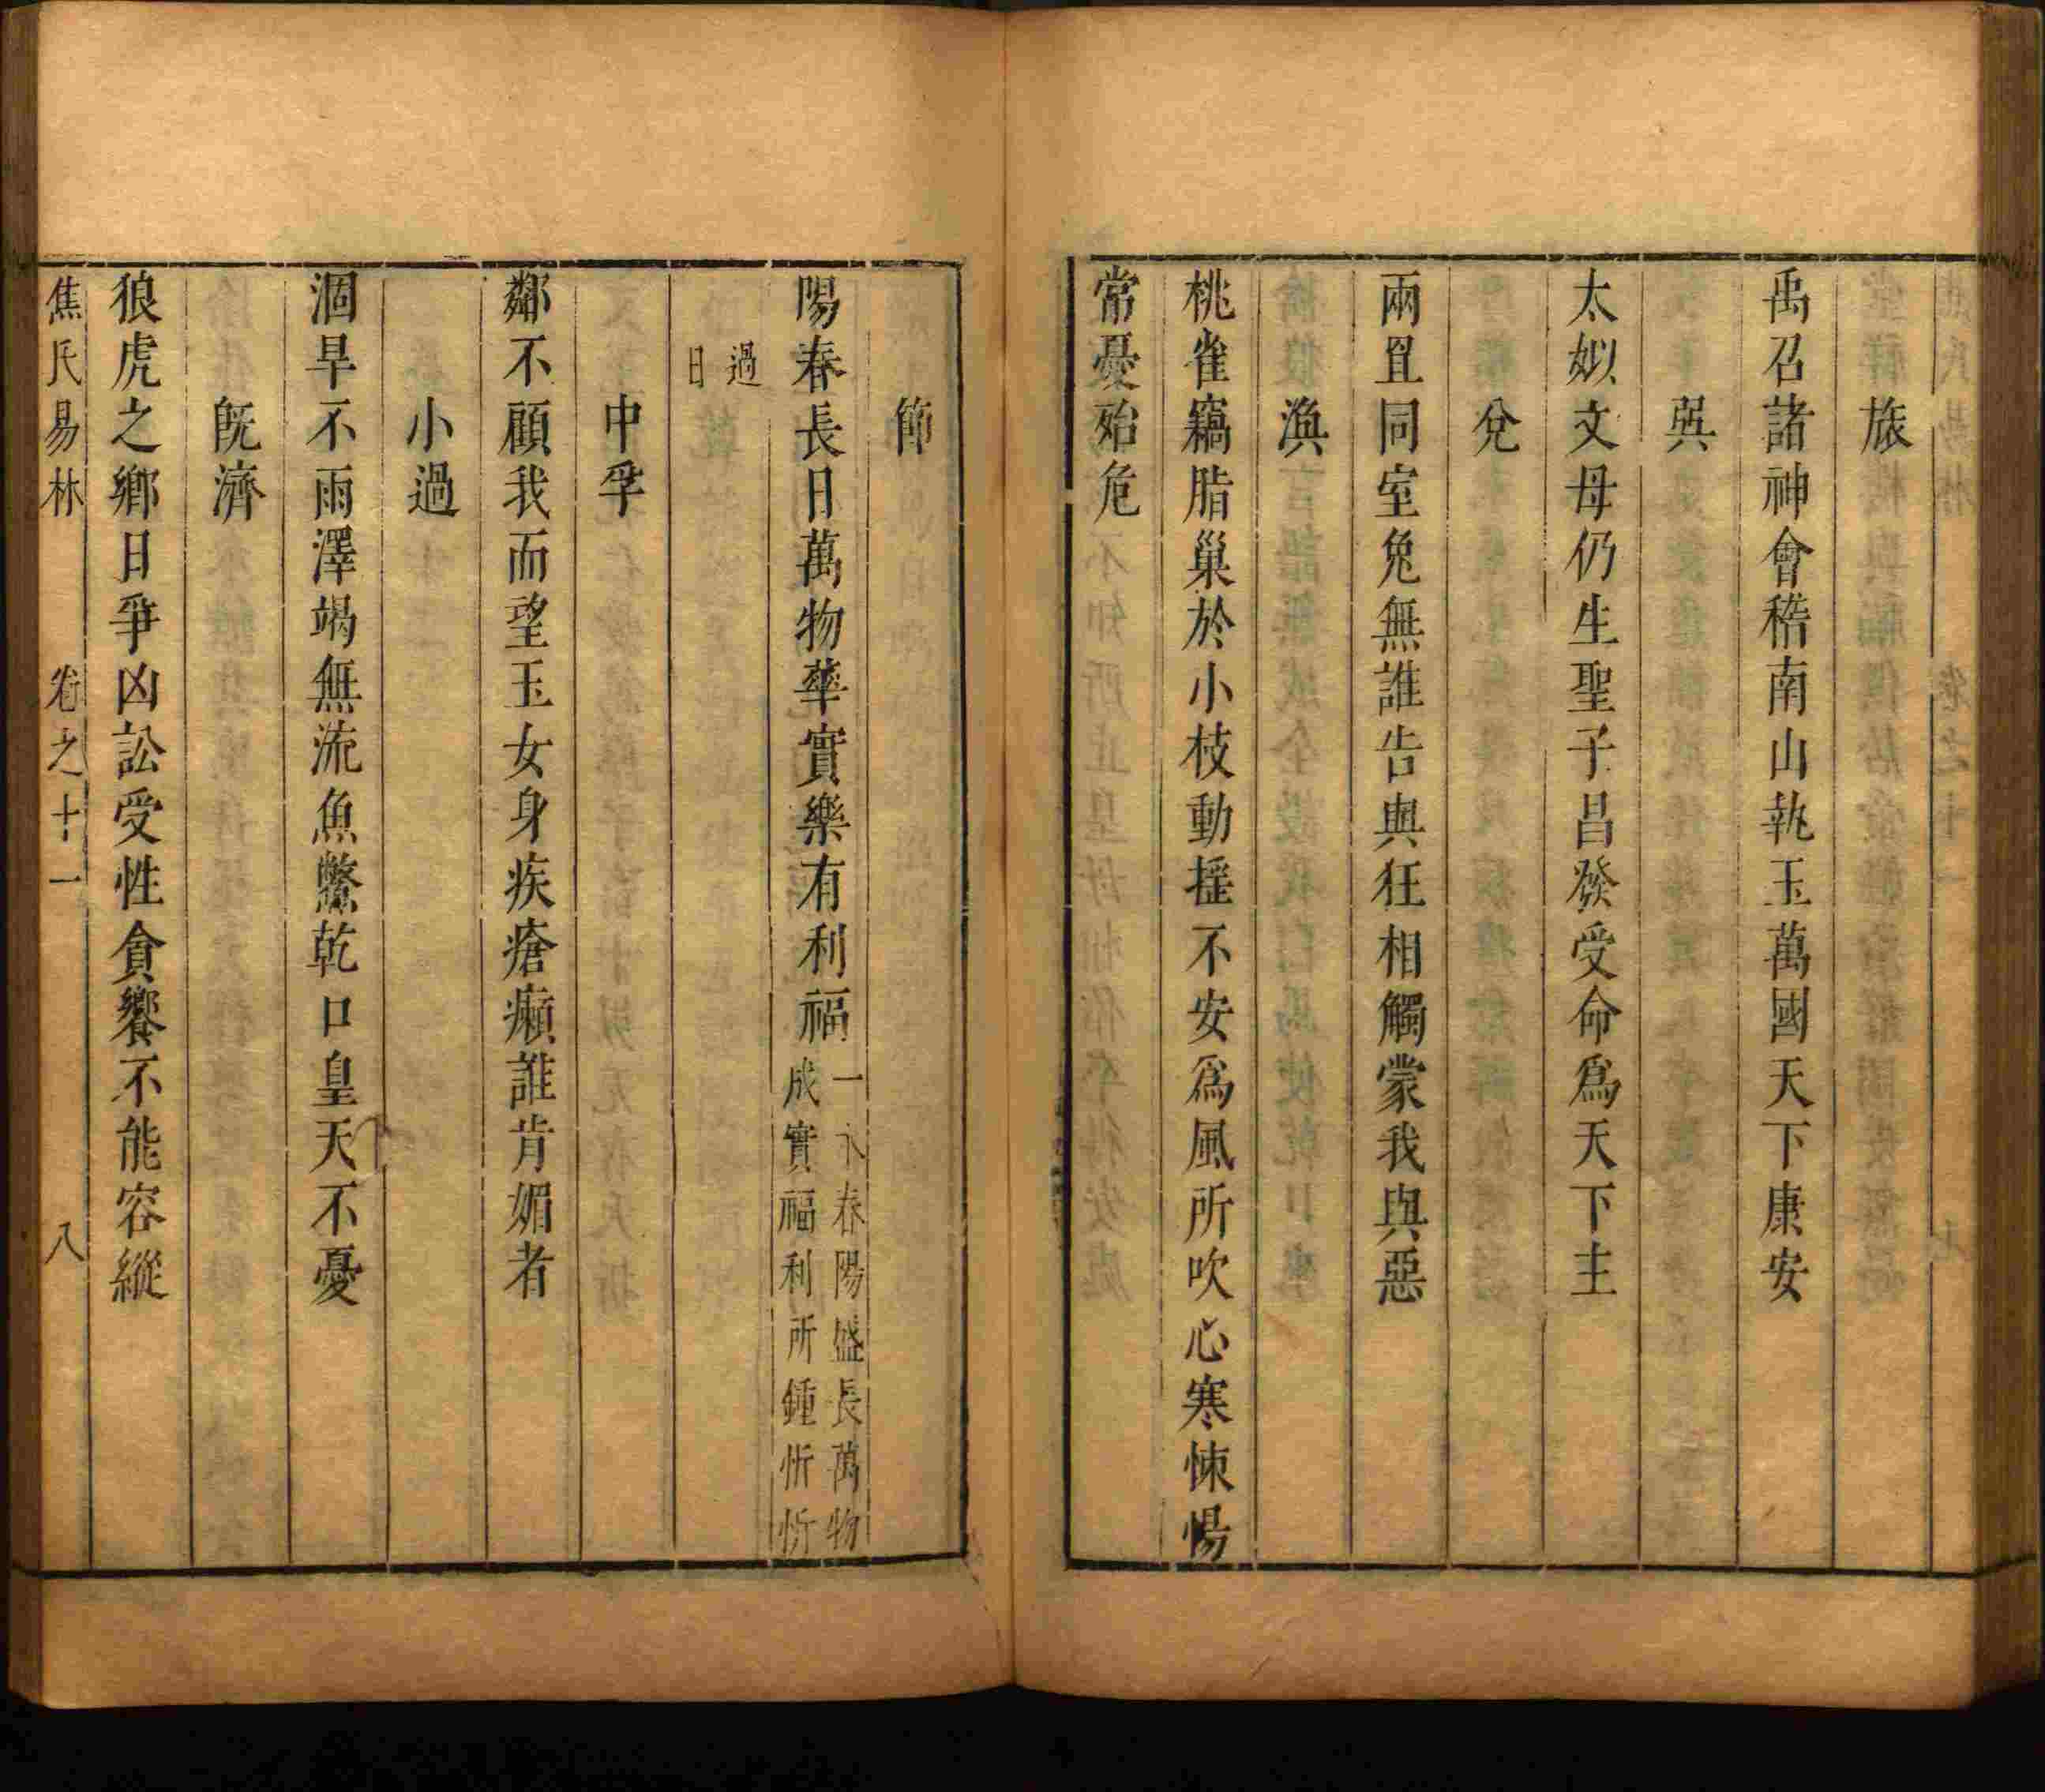 旅
禹召諸神會稽南山執玉萬國天下康安
巽
太姒文母仍生聖子昌發受命爲天下主
兌
兩且同室兔無誰告與狂相觸蒙我與惡
渙
桃雀竊脂巢於小枝動搖不安爲風所吹心寒悚惕
常憂殆危
節
陽春長日萬物華實樂有利福
一卜春陽盛長萬物
成實福利所鍾忻忻
過
日
中孚
鄰不顧我而望玉女身疾瘡癩誰肯媚者
小過
涸旱不雨澤竭無流魚鱉乾口皇天不憂
旣濟
狼虎之鄉日爭凶訟受性貪饕不能容縱
焦氏易林 卷之十一 八